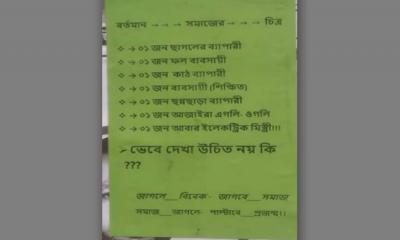 বর্তমান → → → সমাজের → → → চিত্র
❖ → ০১ জন ছাগলের ব্যাপারী
❖ → ০১ জন ফল ব্যবসায়ী
❖ → ০১ জন কাঠ ব্যাপারী
❖ → ০১ জন ব্যবসায়ী (শিক্ষিত)
❖ → ০১ জন ছন্নছাড়া ব্যাপারী
❖ → ০১ জন আজাইরা এগলি- ওগলি
❖ → ০১ জন আবার ইলেকট্রিক মিস্ত্রী!!!
➢ ভেবে দেখা উচিত নয় কি
???
জাগলে___বিবেক- জাগবে___সমাজ
সমাজ___জাগলে- পাল্টাবে___প্রজন্ম।।